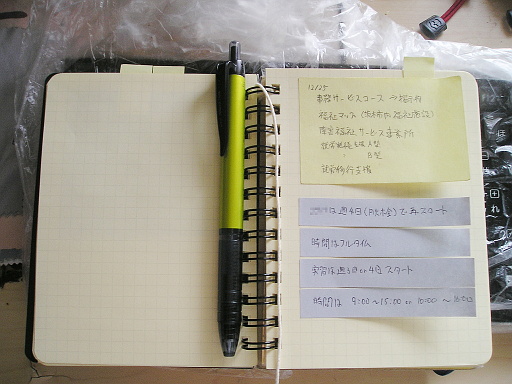 12/25
事務サービスコース →
福祉マップ(市内福祉施設)
障害福祉サービス事業所
就労継続支援A型
〃 B型
就労移行支援
は週4日(月火木金)で再スタート
時間はフルタイム
実習は週3日or4日スタート
時間は 9:00~15:00 or 10:00 ~